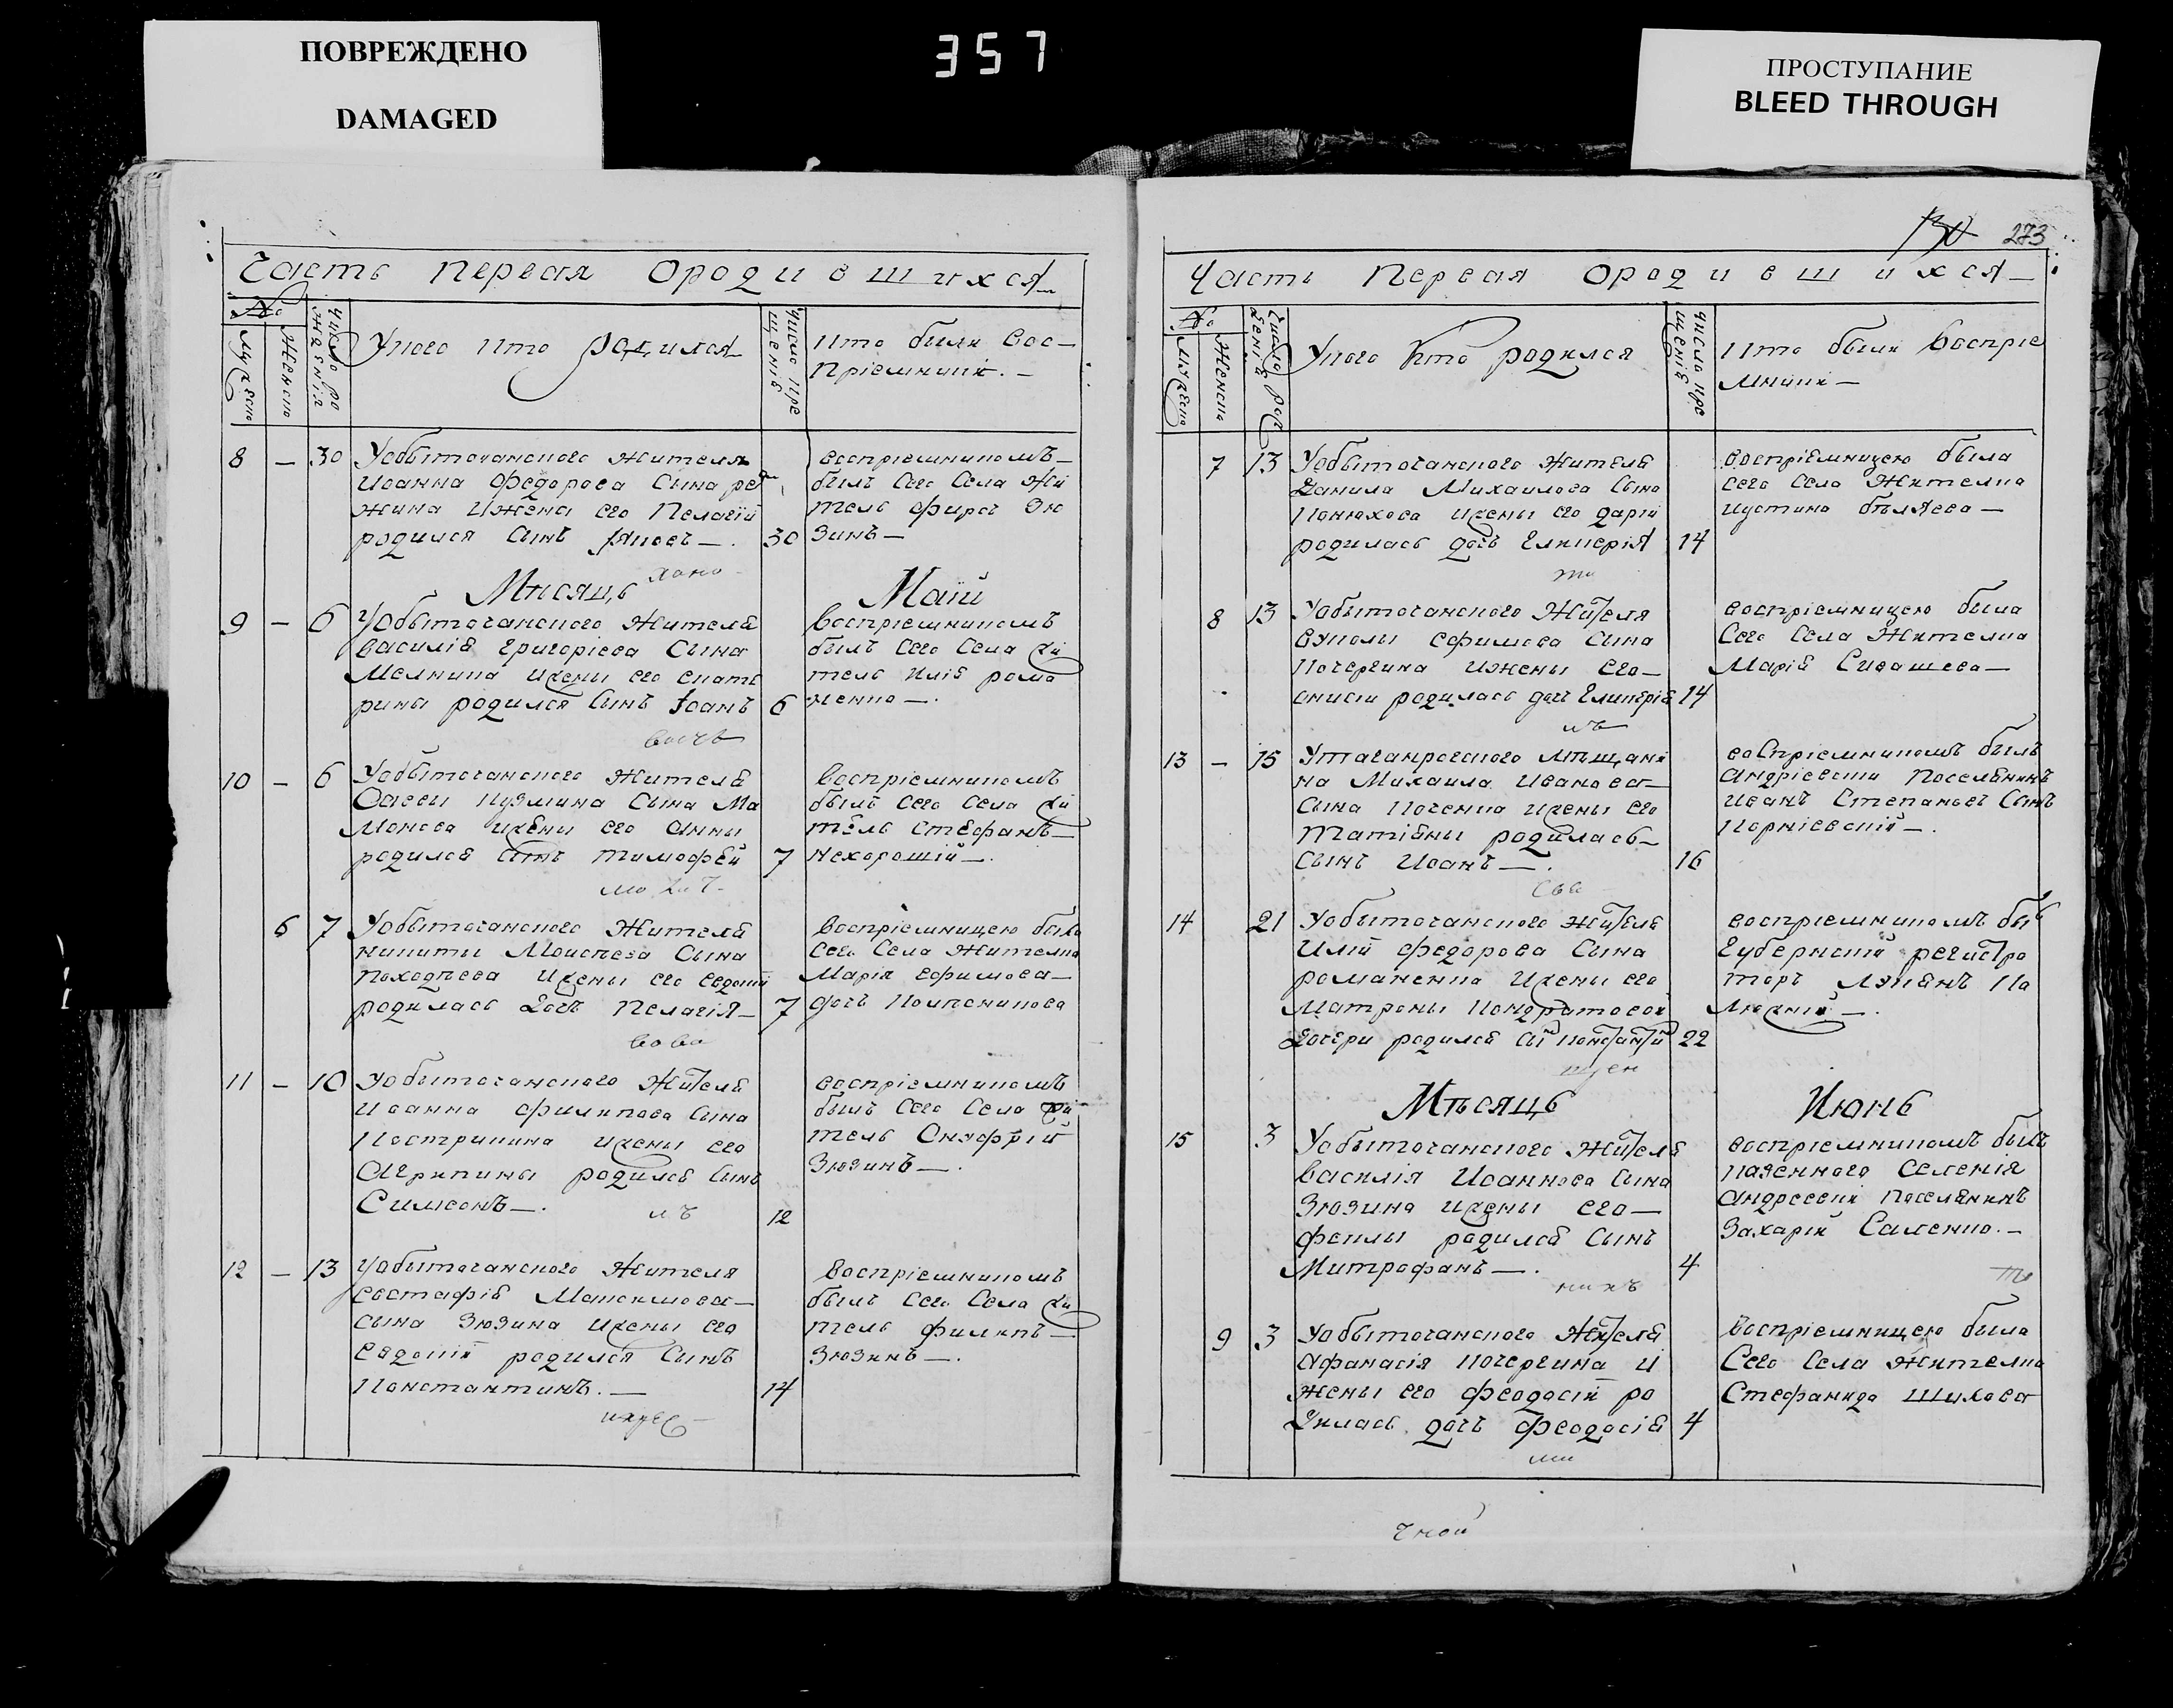 ПОВРЕЖДЕНО
DAMAGED
357
ПРОСТУПАНИЕ
BLEED THROUGH
Часть первая ородившихся
№
Мужеска
Женска
Число рожденія
Укого кто родился
Число крещенія
кто были вос-
пріемники. -
8 - 30 Уобыточанского жителя
Иоанна Федорова сына ре
жина ижены его Пелагіи
родился сынъ Іяковъ - . 30
воспріемникомъ -
былъ сего села жи
тель Фирсъ Зю
зинъ -
Мѣсяцъ Маїй
9 - 6 Уобыточанского жителя
василія григоріева сына
Мелника ижены его екате
рины родился сынъ Іоанъ 6
воспріемникомъ
былъ сего села жи
тель илія рома
ненко - .
10 - 6 Уобыточанского жителя
Саввы кузмина сына Ма
монова ижены его анны
родился сынъ тимофей 7
воспріемникомъ
былъ сего села жи
тель стефанъ -
нехорошій - .
6 7 Уобыточанского жителя
никиты Моисѣева сына
походѣева ижены его евдокіи
родилась дочь Пелагія - 7
воспріемницею была
сего села жителка
Марія ефимова -
дочь
11 - 10 Уобыточанского жителя
иоанна филипова сына
Кострикина ижены его
Агрипины родился сынъ
Симеонъ - . 12
воспріемникомъ
былъ сего села жи
тель Онуфрій
Зюзинъ - .
12 - 13 Уобыточанского жителя
евстафія Максимова -
сына Зюзина ижены его
Евдокіи родился сынъ
Константинъ. - 14
воспріемникомъ
былъ сего села жи
тель филипъ -
Зюзинъ - .
130 273
Часть Первая ородившихся -
№
Мужеска
Женска
Число рожденія
Укого кто родился
Число крещенія
кто были воспріе
мники -
7 13 Уобыточанского жителя
Данила Михаилова сына
Конюхова ижены его дарїи
родилась дочь Гликерія 14
воспріемницею была
сего села жителка
иустина бѣляева -
8 13 Уобыточанского жителя
вуколы ефимова сына
Кочергина ижены его -
анисіи родилась дочь Гликерія 14
воспріемницею была
сего села жителка
Марія Сивашева -
13 - 15 Утаганрогского мѣщани
на Михаила Иванова -
сына ижены его
татіяны родилась -
сынъ Иоанъ - . 16
воспріемникомъ былъ
андріевски поселянинъ
Иванъ Степановъ сынъ
Корніевскій - .
14 21 Уобыточанского жителя
Иліи федорова сына
романенка ижены его
Матроны Кондратовой
дочери родился сы Константи 22
воспріемникомъ бы
Губернски регистра
торъ
Мѣсяцъ Июнь
15 3 Уобыточанского жителя
василія Иоаннова сына
Зюзина ижены его -
феклы родился сынъ
Митрофанъ - . 4
воспріемникомъ былъ
казенного селенія
андреевки поселянинъ
Захарій Саленко. -
9 3 Уобыточанского жителя
Афанасія Кочергина и
жены его феодосіи ро
дилась дочь Феодосія 4
воспріемницею была
сего села жителка
Стефанида Шилова